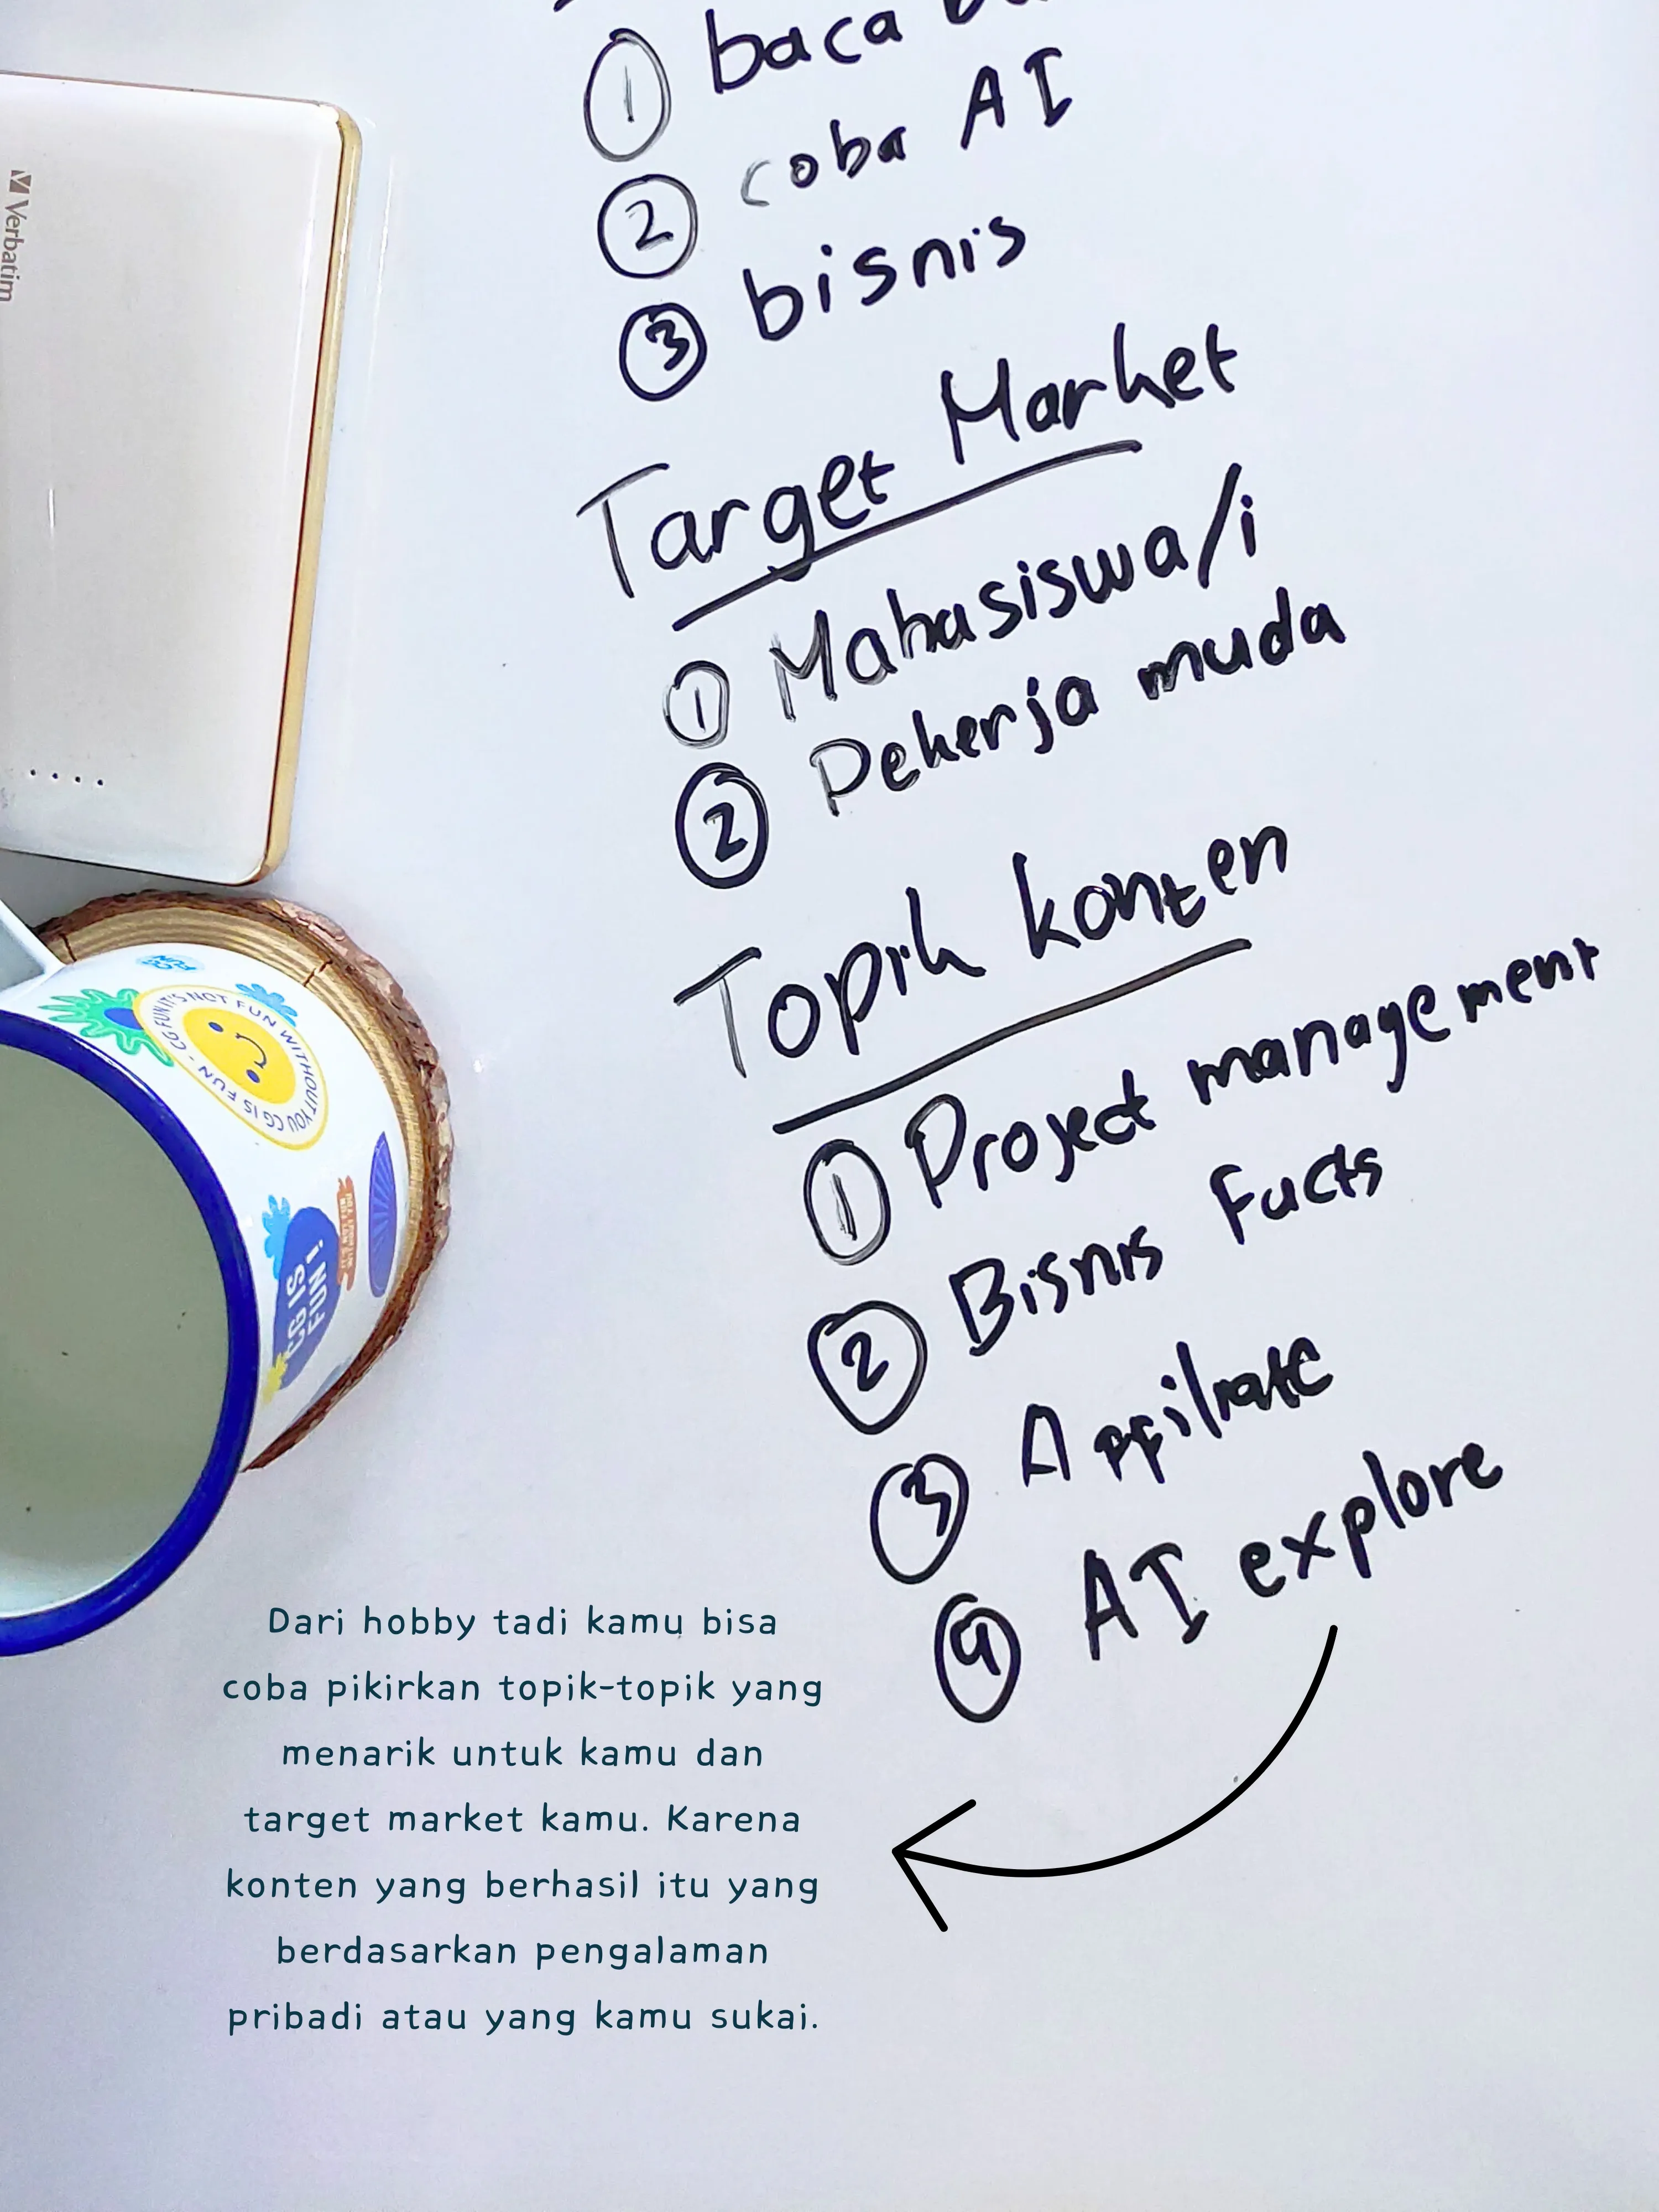 ① baca
② coba AI
③ bisnis
Target Market
① Mahasiswa/i
② Pekerja muda
Topik konten
① Project management
② Bisnis Facts
③ Affiliate
④ AI explore
Verbatim
CG IS FUN
IT'S NOT FUN WITHOUT YOU CG IS FUN - CG FUN
CG IS
FUN!
Dari hobby tadi kamu bisa
coba pikirkan topik-topik yang
menarik untuk kamu dan
target market kamu. Karena
konten yang berhasil itu yang
berdasarkan pengalaman
pribadi atau yang kamu sukai.